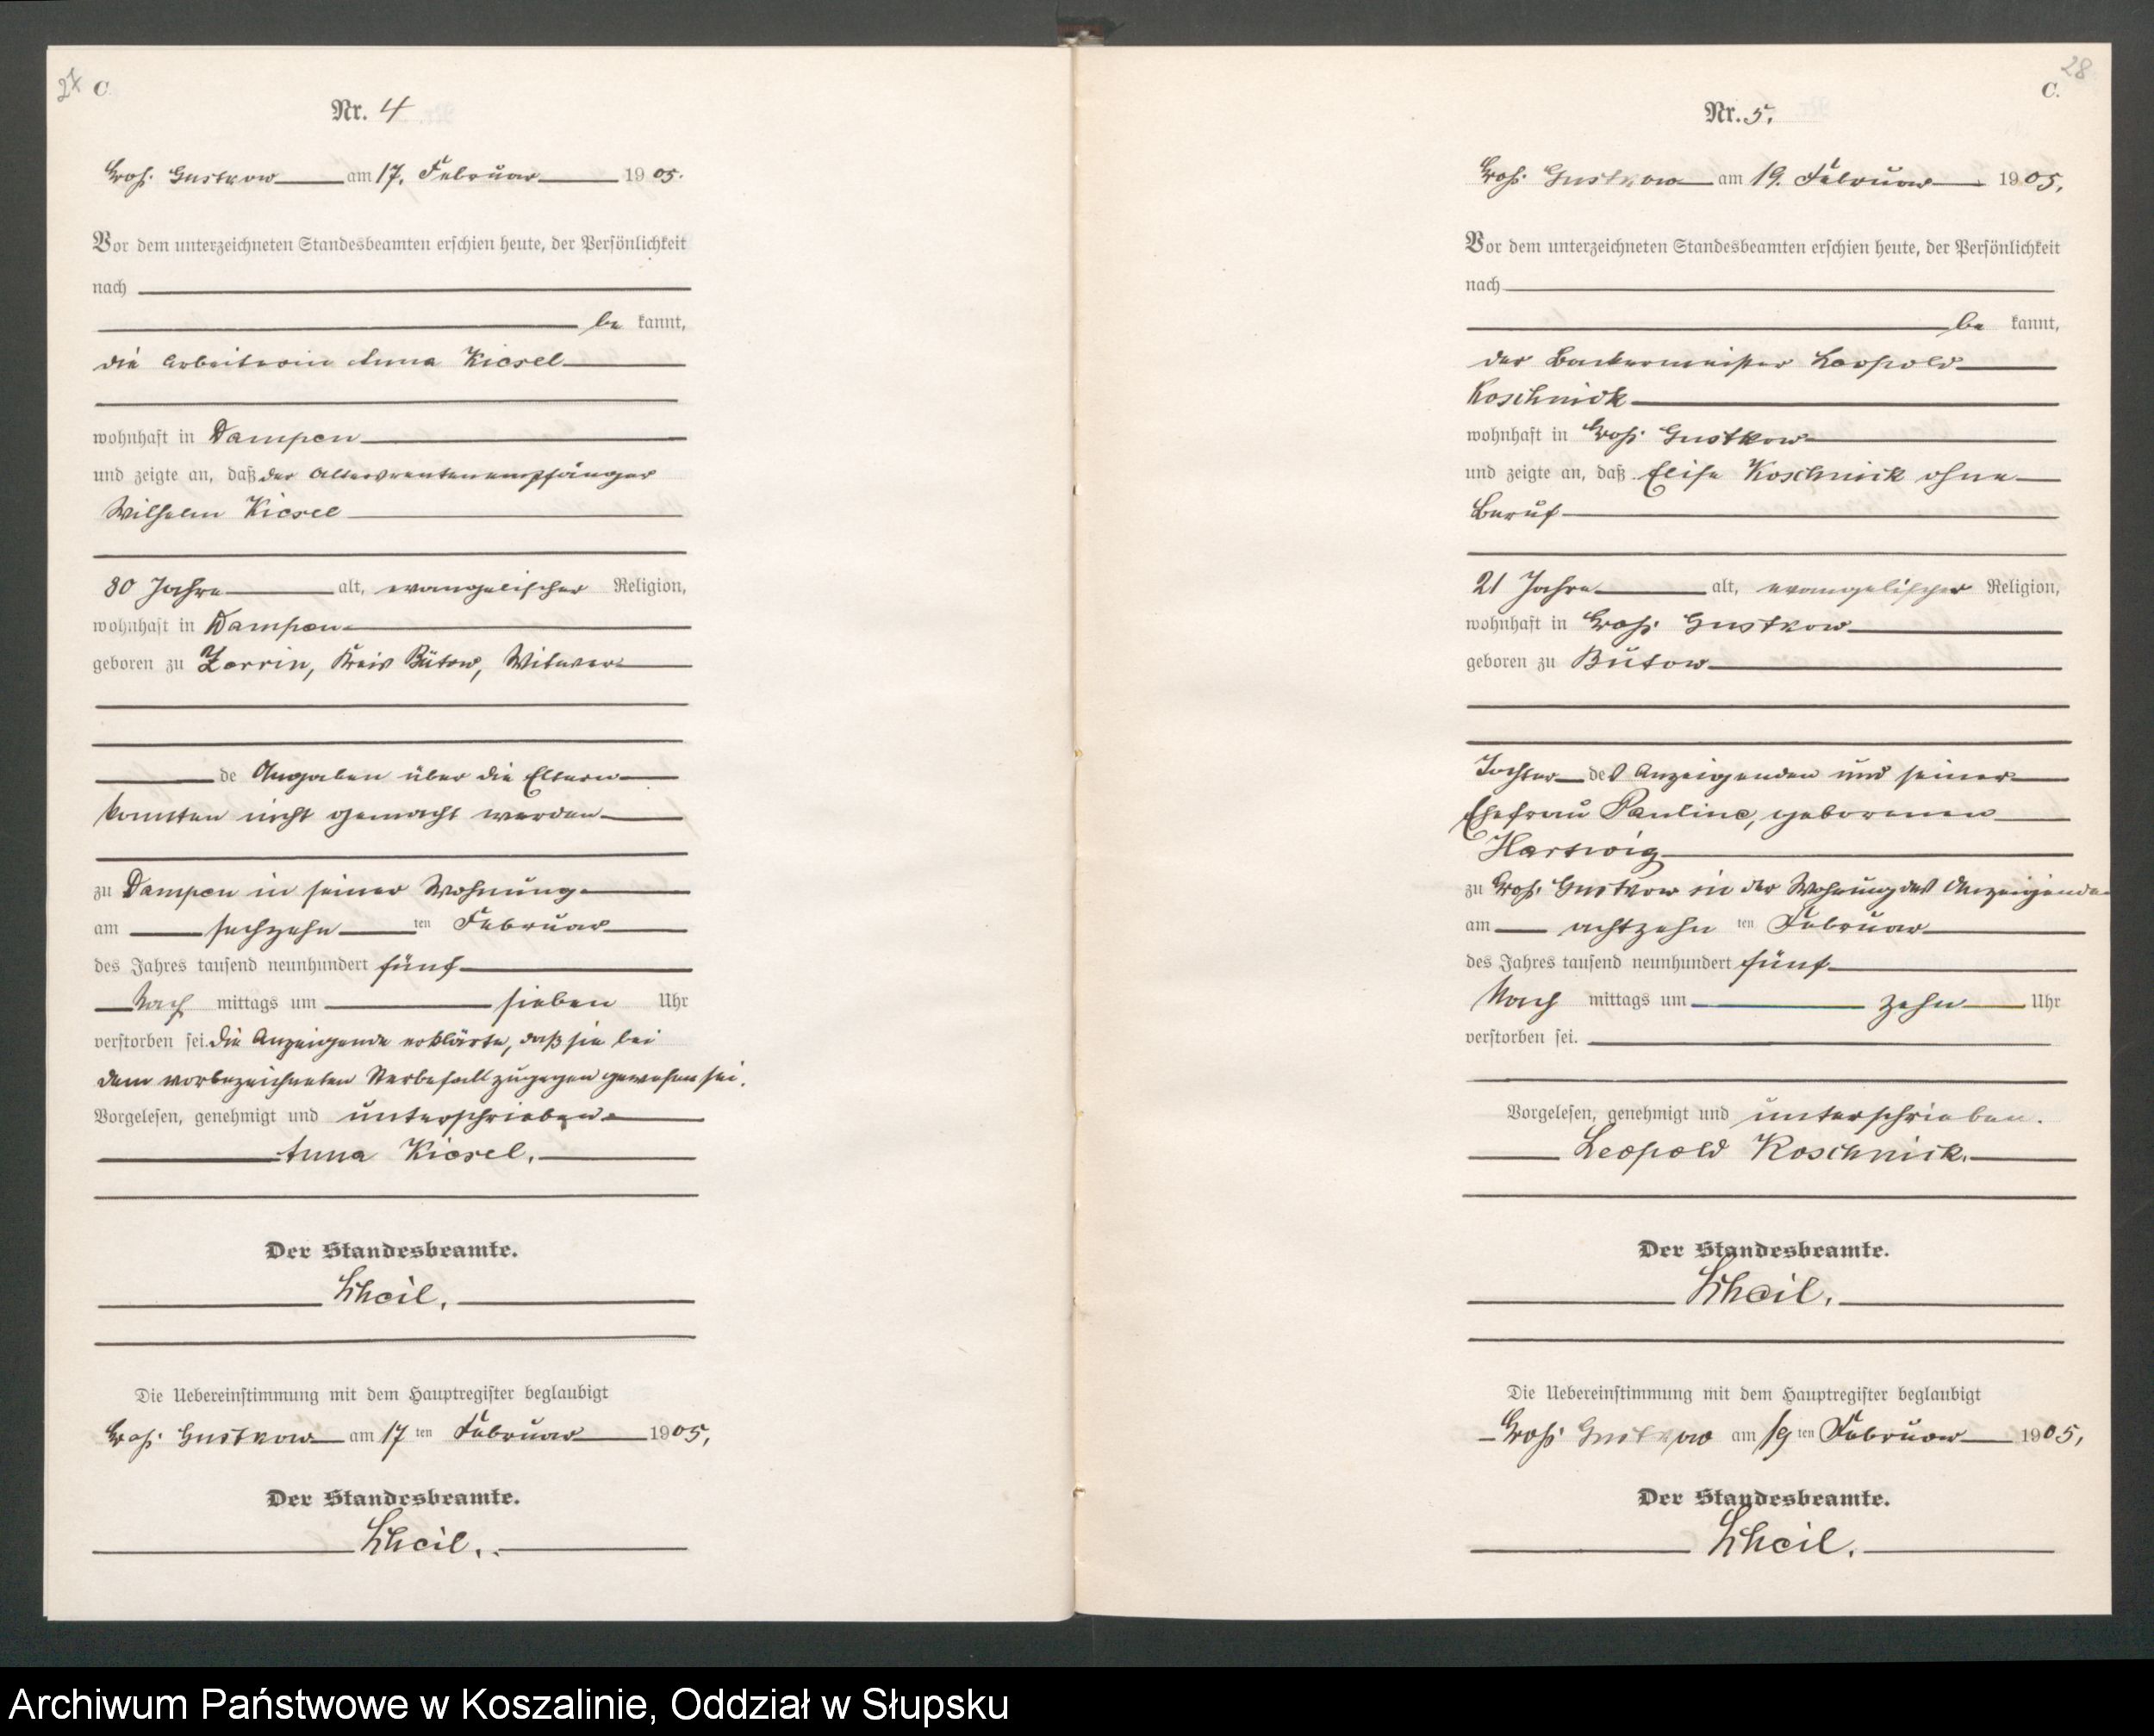 27 C
Nr. 4
Groß Gustkow am 17. Februar 1905.
Vor dem unterzeichneten Standesbeamten erschien heute, der Persönlichkeit
nach
be kannt,
die Arbeiterin Anna Kiesel
wohnhaft in Dampen
und zeigte an, daß der Altersrentenempfänger
Wilhelm Kiesel
80 Jahre alt, evangelischer Religion,
wohnhaft in Dampen
geboren zu Zerrin, Kreis Bütow, Witwer
de Angaben über die Eltern
konnten nicht gemacht werden
zu Dampen in seiner Wohnung
am sechzehn ten Februar
des Jahres tausend neunhundert fünf
Nach mittags um sieben Uhr
verstorben sei. Die Anzeigende erklärte, daß sie bei
dem vorbezeichneten Sterbefall zugegen gewesen sei.
Vorgelesen, genehmigt und unterschrieben
Anna Kiesel.
Der Standesbeamte.
Die Uebereinstimmung mit dem Hauptregister beglaubigt
Groß Gustkow am 17 ten Februar 1905,
Der Standesbeamte.
28
C.
Nr. 5.
Groß Gustkow am 19. Februar 1905,
Vor dem unterzeichneten Standesbeamten erschien heute, der Persönlichkeit
nach
be kannt,
der Bäckermeister Leopold
Koschnick
wohnhaft in Groß Gustkow
und zeigte an, daß Elise Koschnick ohne
Beruf
21 Jahre alt, evangelischer Religion,
wohnhaft in Groß Gustkow
geboren zu Bütow
Tochter des Anzeigenden und seiner
Ehefrau Pauline, geborenen
Hartwig
zu Groß Gustkow in der Wohnung des Anzeigenden
am achtzehn ten Februar
des Jahres tausend neunhundert fünf
Nach mittags um zehn Uhr
verstorben sei.
Vorgelesen, genehmigt und unterschrieben.
Leopold Koschnick.
Der Standesbeamte.
Die Uebereinstimmung mit dem Hauptregister beglaubigt
Groß Gustkow am 19 ten Februar 1905,
Der Standesbeamte.
Archiwum Państwowe w Koszalinie, Oddział w Słupsku